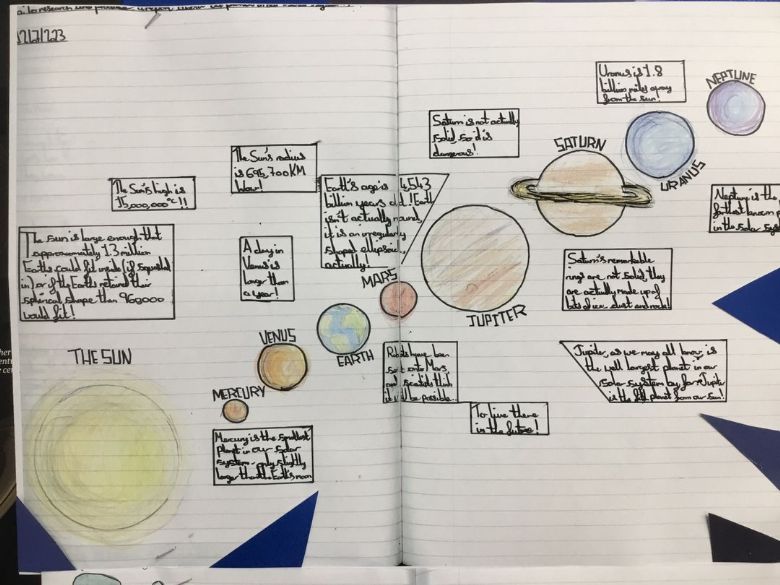 12/7/2023
THE SUN
The Sun is large enough that
approximately 1.3 million
Earths could fit inside (if squashed
in) or if the Earths retained their
spherical shape than 960,000
would fit!
The Sun's high is
15,000,000°C!!
The Sun's radius
is 695,700KM
Wow!
MERCURY
Mercury is the smallest
planet in our solar
system - only slightly
larger than the Earth's moon
VENUS
A day in
Venus is
longer than
a year!
EARTH
Earth's age is 4.543
billion years old! Earth
isn't actually round,
it is an irregularly
shaped ellipsoid
actually!
MARS
Robots have been
sent onto Mars
and scientists think
it would be possible
To live there
in the future!
JUPITER
Jupiter, as we may all know is
the well largest planet in our
solar system by far. Jupiter
is the fifth planet from our Sun!
SATURN
Saturn is not actually
solid, so it is
dangerous!
Saturn's remarkable
rings are not solid, they
are actually made up of
bits of ice, dust and rock!
URANUS
Uranus is 1.8
billion miles away
from the sun!
NEPTUNE
Neptune is the
in the solar